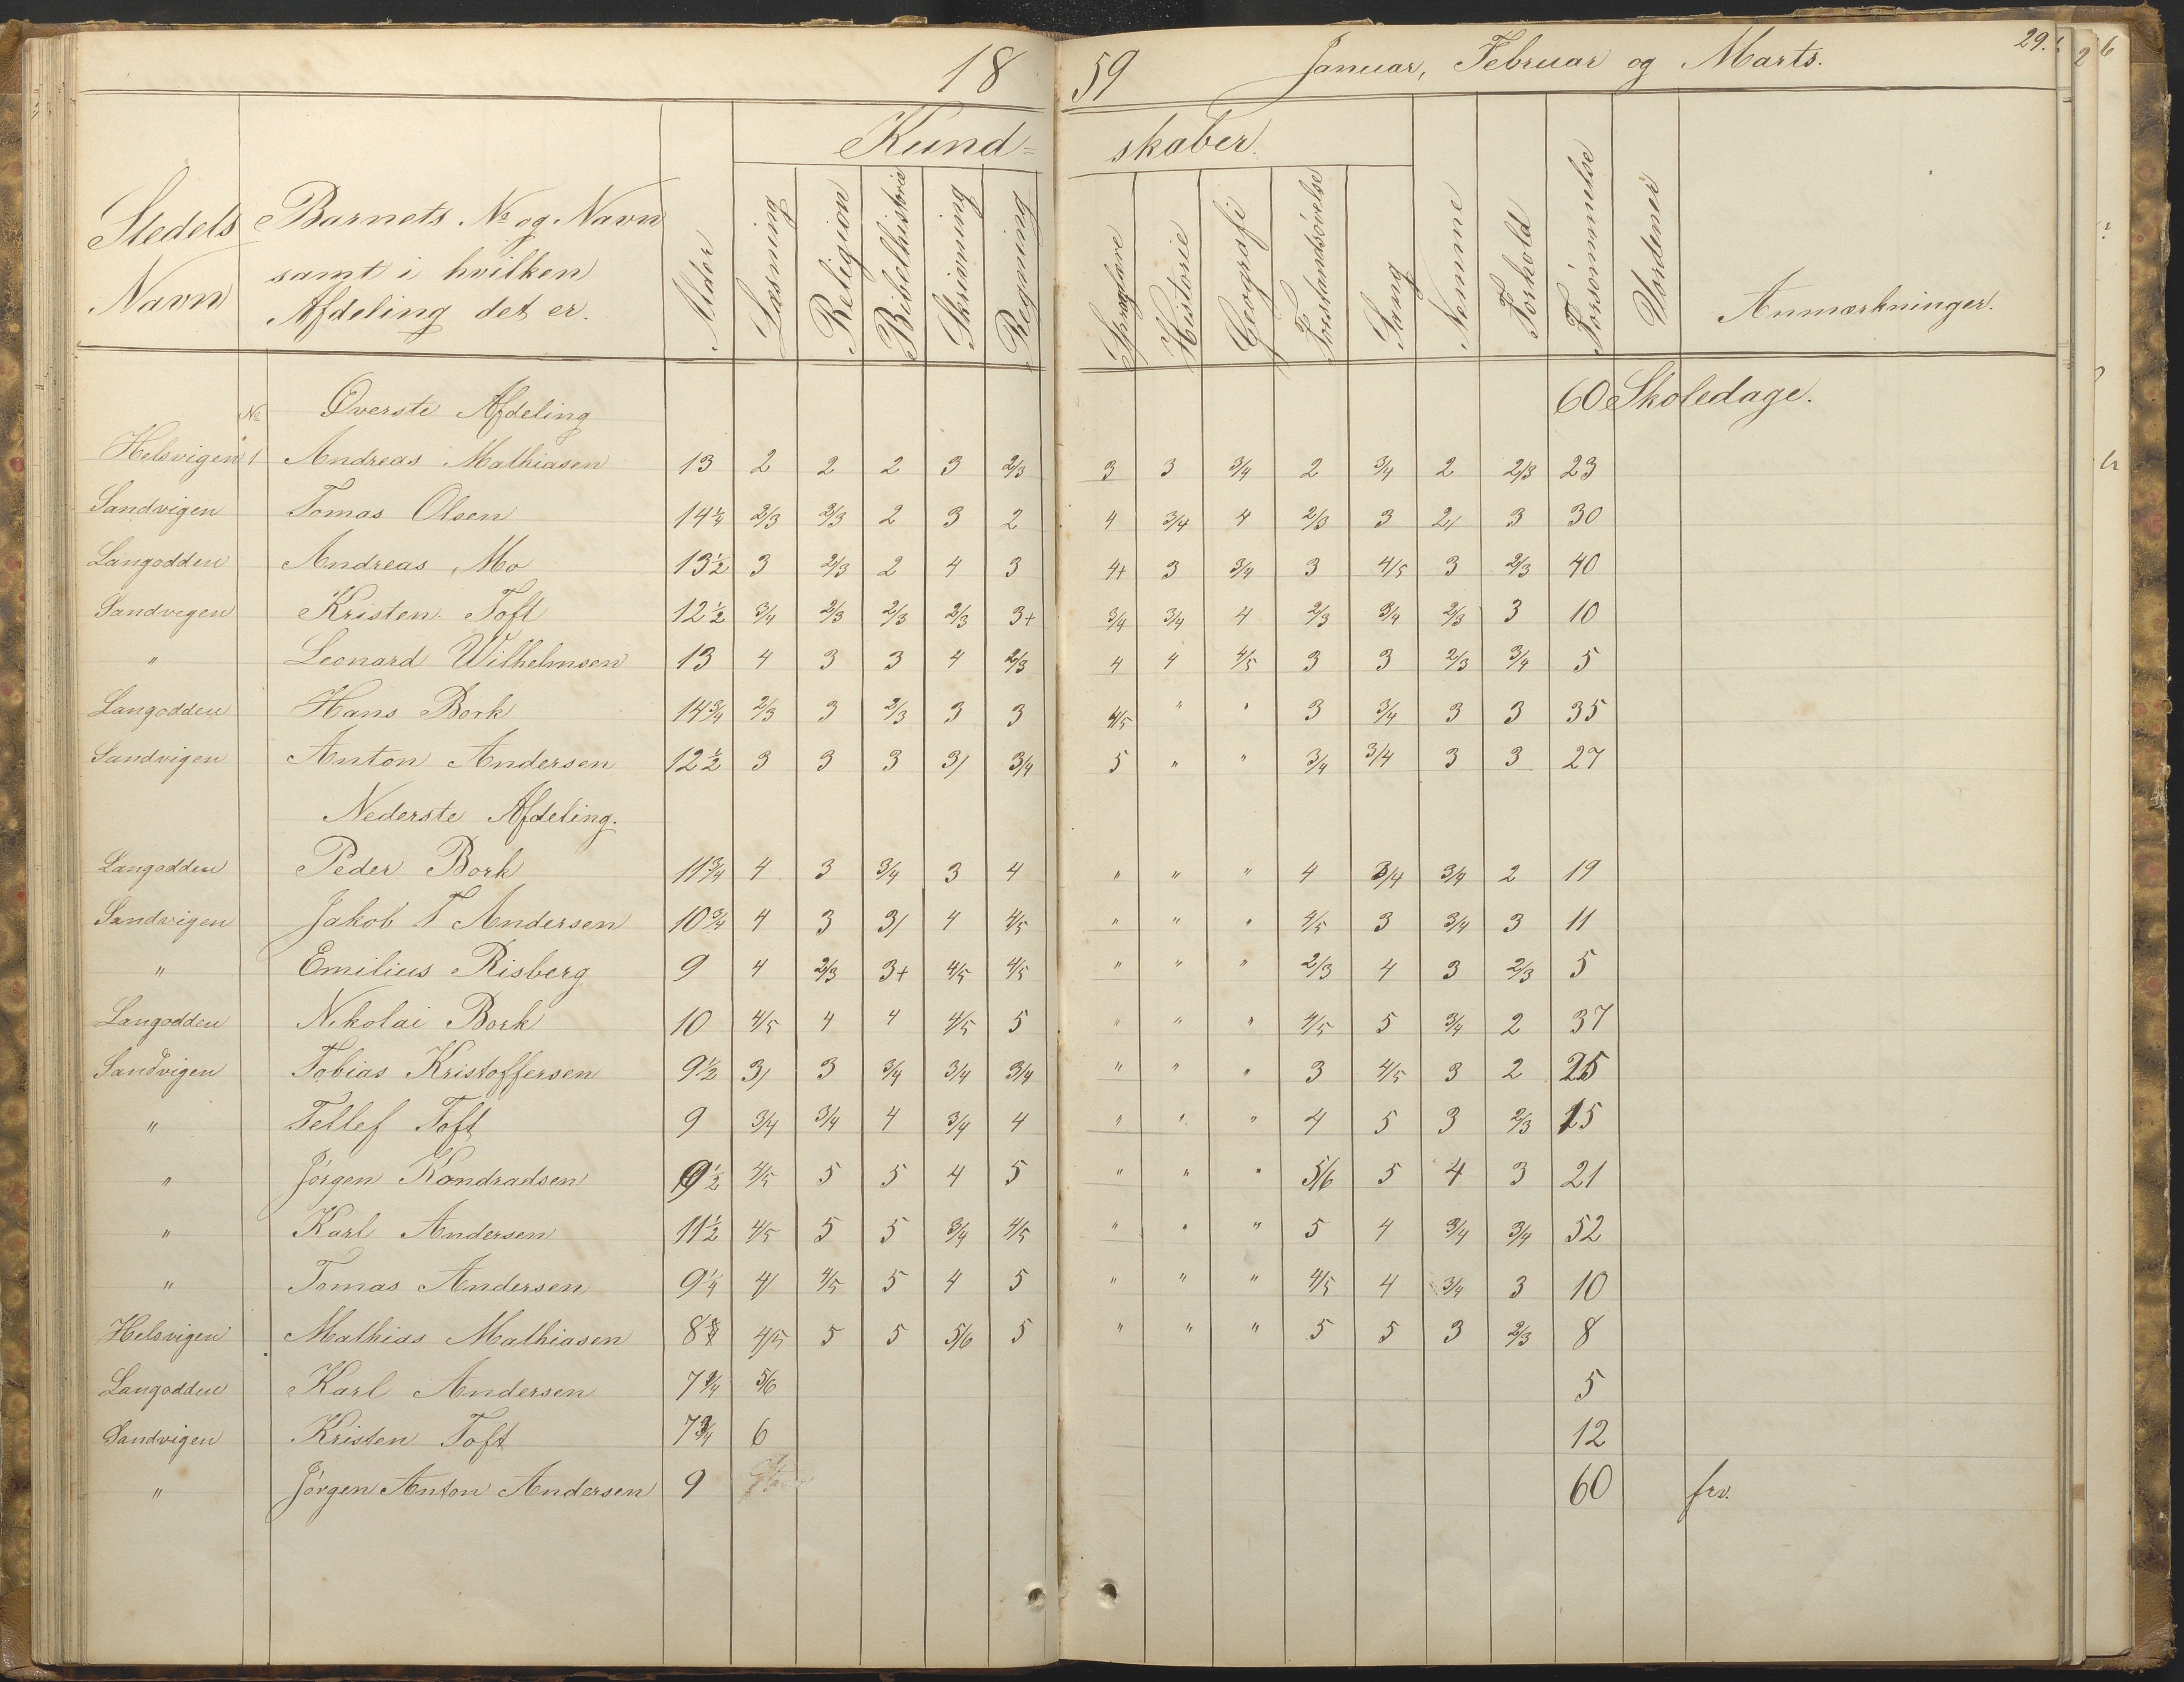 1859 Januar, Februar og Marts. 29.
Kundskaber.
Stedets Navn | Barnets No og Navn samt i hvilken Afdeling det er. | Alder | Læsning | Religion | Bibelhistorie | Skrivning | Regning | Sproglære | Historie | Geografi | Forstandsövelse | Sang | Nemme | Forhold | Forsömmelse | Vordenes | Anmærkninger.
No Överste Afdeling 60 Skoledage.
Helsvigen 1 Andreas Mathiasen 13 2 2 2 3 2/3 3 3 3/4 2 3/4 2 2/3 23
Sandvigen Tomas Olsen 14 1/4 2/3 2/3 2 3 2 4 3/4 4 2/3 3 2/ 3 30
Langodden Andreas Mo 13 1/2 3 2/3 2 4 3 4+ 3 3/4 3 4/5 3 2/3 40
Sandvigen Kristen Toft 12 1/2 3/4 2/3 2/3 2/3 3+ 3/4 3/4 4 2/3 3/4 2/3 3 10
" Leonard Wilhelmsen 13 4 3 3 4 2/3 4 4 4/5 3 3 2/3 3/4 5
Langodden Hans Bork 14 3/4 2/3 3 2/3 3 3 4/5 " " 3 3/4 3 3 35
Sandvigen Anton Andersen 12 1/2 3 3 3 3/ 3/4 5 " " 3/4 3/4 3 3 27
Nederste Afdeling.
Langodden Peder Bork 11 3/4 4 3 3/4 3 4 " " " 4 3/4 3/4 2 19
Sandvigen Jakob T Andersen 10 3/4 4 3 3/ 4 4/5 " " " 4/5 3 3/4 3 11
" Emilius Risberg 9 4 2/3 3+ 4/5 4/5 " " " 2/3 4 3 2/3 5
Langodden Nikolai Bork 10 4/5 4 4 4/5 5 " " " 4/5 5 3/4 2 37
Sandvigen Tobias Kristoffersen 9 1/2 3/ 3 3/4 3/4 3/4 " " " 3 4/5 3 2 25
" Tellef Toft 9 3/4 3/4 4 3/4 4 " " " 4 5 3 2/3 15
" Jörgen Kondradsen 9 1/2 4/5 5 5 4 5 " " " 5/6 5 4 3 21
" Karl Andersen 11 1/2 4/5 5 5 3/4 4/5 " " " 5 4 3/4 3/4 52
" Tomas Andersen 9 1/4 4/ 4/5 5 4 5 " " " 4/5 4 3/4 3 10
Helsvigen Mathias Mathiasen 8 4/5 5 5 5/6 5 " " " 5 5 3 2/3 8
Langodden Karl Andersen 7 3/4 5/6 5
Sandvigen Kristen Toft 7 3/4 6 12
" Jörgen Anton Andersen 9 60 frv.